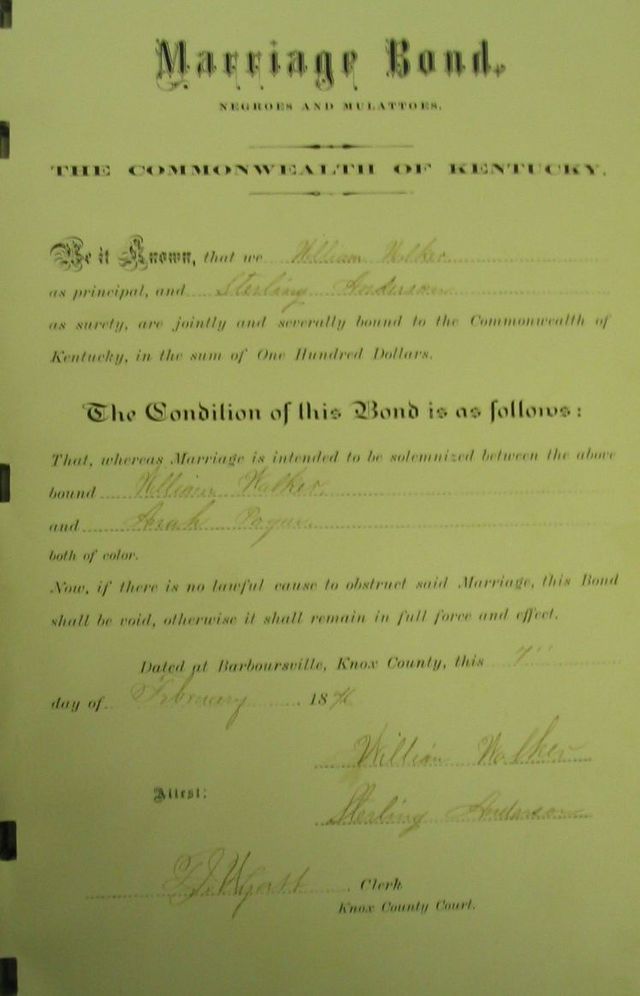 Marriage Bond.
NEGROES AND MULATTOES.
THE COMMONWEALTH OF KENTUCKY.
Be it Known, that we William Walker
as principal, and Sterling Anderson
as surety, are jointly and severally bound to the Commonwealth of
Kentucky, in the sum of One Hundred Dollars.
The Condition of this Bond is as follows:
That, whereas Marriage is intended to be solemnized between the above
bound William Walker
and Sarah
both of color.
Now, if there is no lawful cause to obstruct said Marriage, this Bond
shall be void, otherwise it shall remain in full force and effect.
Dated at Barboursville, Knox County, this 7"
day of February 18
William Walker
Attest:
Sterling Anderson
Wyatt, Clerk
Knox County Court.